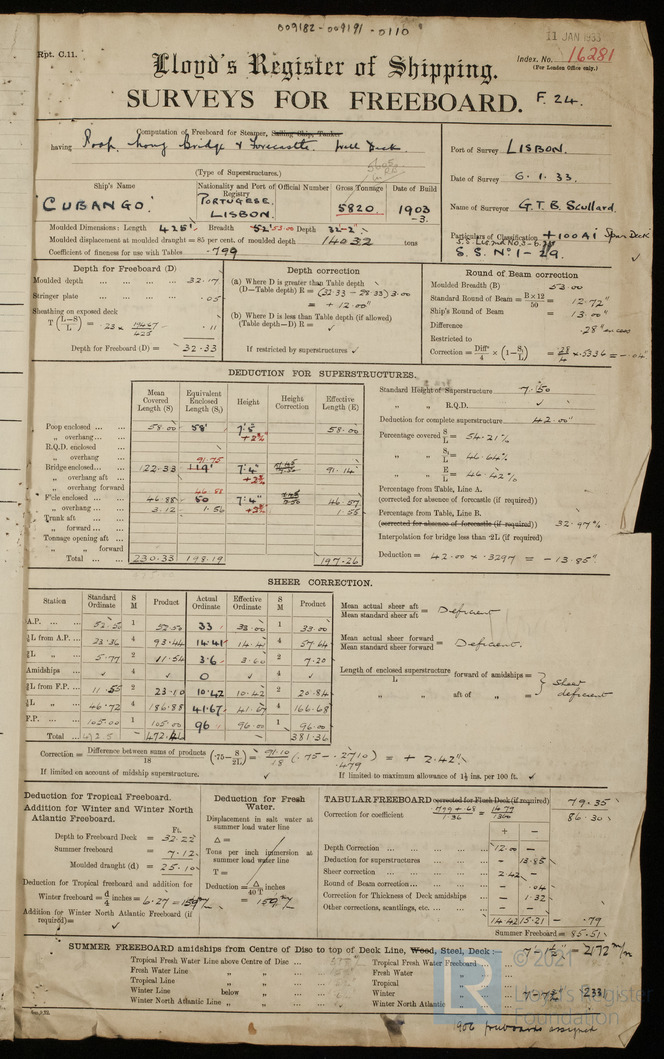 009182-009191-0110
11 JAN 1933
Rpt. C.11.
Index. No. 16281
(For London Office only.)
Lloyd's Register of Shipping.
SURVEYS FOR FREEBOARD. F. 24.
Computation of Freeboard for Steamer, Sailing Ship, Tanker
having Poop, Long Bridge & Forecastle. Well Deck.
(Type of Superstructures.)
Port of Survey LISBON.
Date of Survey 6.1.33.
Name of Surveyor G.T.B. Scullard.
Particulars of Classification +100A1 Spar Deck
S.S. No 1-29.
Ship's Name
Nationality and Port of Registry
Official Number
Gross Tonnage
Date of Build
'CUBANGO'
PORTUGESE.
LISBON.
5820
1903
-3.
Moulded Dimensions: Length 425' Breadth 52' 53.00 Depth 32'-2"
Moulded displacement at moulded draught = 85 per cent. of moulded depth 14032 tons
Coefficient of fineness for use with Tables .799
Depth for Freeboard (D)
Moulded depth 32.17
Stringer plate .05
Sheathing on exposed deck
T (L-S/L) = .11
Depth for Freeboard (D) = 32.33
Depth correction
(a) Where D is greater than Table depth
(D—Table depth) R = (32.33 - 28.33) 3.00
= + 12.00"
(b) Where D is less than Table depth (if allowed)
(Table depth—D) R = ✓
If restricted by superstructures ✓
Round of Beam correction
Moulded Breadth (B) 53.00
Standard Round of Beam = B×12/50 = 12.72"
Ship's Round of Beam = 13.00"
Difference .28" excess
Restricted to
Correction = Diffce/4 × (1-S1/L) = .28/4 × .5336 = -.04"
DEDUCTION FOR SUPERSTRUCTURES.
Mean Covered Length (S)
Equivalent Enclosed Length (S1)
Height
Height Correction
Effective Length (E)
Poop enclosed 58.00 58' 7'.8" 58.00
„ overhang
R.Q.D. enclosed
„ overhang
91.75
Bridge enclosed 122.33 119' 7'.4" 91.14
„ overhang aft
„ overhang forward
46.88
F'cle enclosed 46.88 50 7'.4" 46.57
„ overhang 3.12 1.56 1.55
Trunk aft
„ forward
Tonnage opening aft
„ „ forward
Total 230.33 198.19 197.26
Standard Height of Superstructure 7.50
„ „ R.Q.D. ✓
Deduction for complete superstructure 42.00"
Percentage covered S/L = 54.21%
„ „ S1/L = 46.64%
„ „ E/L = 46.42%
Percentage from Table, Line A.
(corrected for absence of forecastle (if required))
Percentage from Table, Line B.
(corrected for absence of forecastle (if required)) 32.97%
Interpolation for bridge less than ·2L (if required)
Deduction = 42.00 x .3297 = -13.85"
SHEER CORRECTION.
Station
Standard Ordinate
S M
Product
Actual Ordinate
Effective Ordinate
S M
Product
A.P. 52.50 1 52.50 33 33.00 1 33.00
⅙L from A.P. 23.36 4 93.44 14.41 14.41 4 57.64
⅓L „ 5.77 2 11.54 3.6 3.60 2 7.20
Amidships ✓ 4 ✓ 0 ✓ 4 ✓
⅓L from F.P. 11.55 2 23.10 10.42 10.42 2 20.84
⅙L „ 46.72 4 186.88 41.67 41.67 4 166.68
F.P. 105.00 1 105.00 96 96.00 1 96.00
Total 472.46 381.36
Mean actual sheer aft / Mean standard sheer aft = Deficient
Mean actual sheer forward / Mean standard sheer forward = Deficient.
Length of enclosed superstructure / L forward of amidships =
„ „ aft of „ =
Sheer deficient
Correction = Difference between sums of products / 18 (·75 - S/2L) = 91.10/18 (.75 - .2710) = + 2.42"
.479
If limited on account of midship superstructure. ✓
If limited to maximum allowance of 1½ ins. per 100 ft. ✓
Deduction for Tropical Freeboard.
Addition for Winter and Winter North Atlantic Freeboard.
Ft.
Depth to Freeboard Deck = 32.22
Summer freeboard = 7.12
Moulded draught (d) = 25.10
Deduction for Tropical freeboard and addition for
Winter freeboard = d/4 inches = 6.27 = 159 m/m
Addition for Winter North Atlantic Freeboard (if required) =
✓
Deduction for Fresh Water.
Displacement in salt water at summer load water line
Δ =
Tons per inch immersion at summer load water line
T =
Deduction = Δ/40T inches
= 159 m/m
TABULAR FREEBOARD corrected for Flush Deck (if required) 79.35
Correction for coefficient .799 + .68 / 1.36 = 1.479/1.360 86.30
+ -
Depth Correction 12.00 -
Deduction for superstructures - 13.85
Sheer correction 2.42 -
Round of Beam correction - .04
Correction for Thickness of Deck amidships - 1.32
Other corrections, scantlings, etc. - -
14.42 15.21 - .79
Summer Freeboard = 85.51
SUMMER FREEBOARD amidships from Centre of Disc to top of Deck Line, Wood, Steel, Deck: 7'-1½" - 2172 m/m
Tropical Fresh Water Line above Centre of Disc
Fresh Water Line „ „
Tropical Line „ „
Winter Line below „
Winter North Atlantic Line „ „
Tropical Fresh Water Freeboard
Fresh Water „
Tropical „
Winter „
Winter North Atlantic „
© 2021
Lloyd's Register
Foundation
1906 freeboards assigned